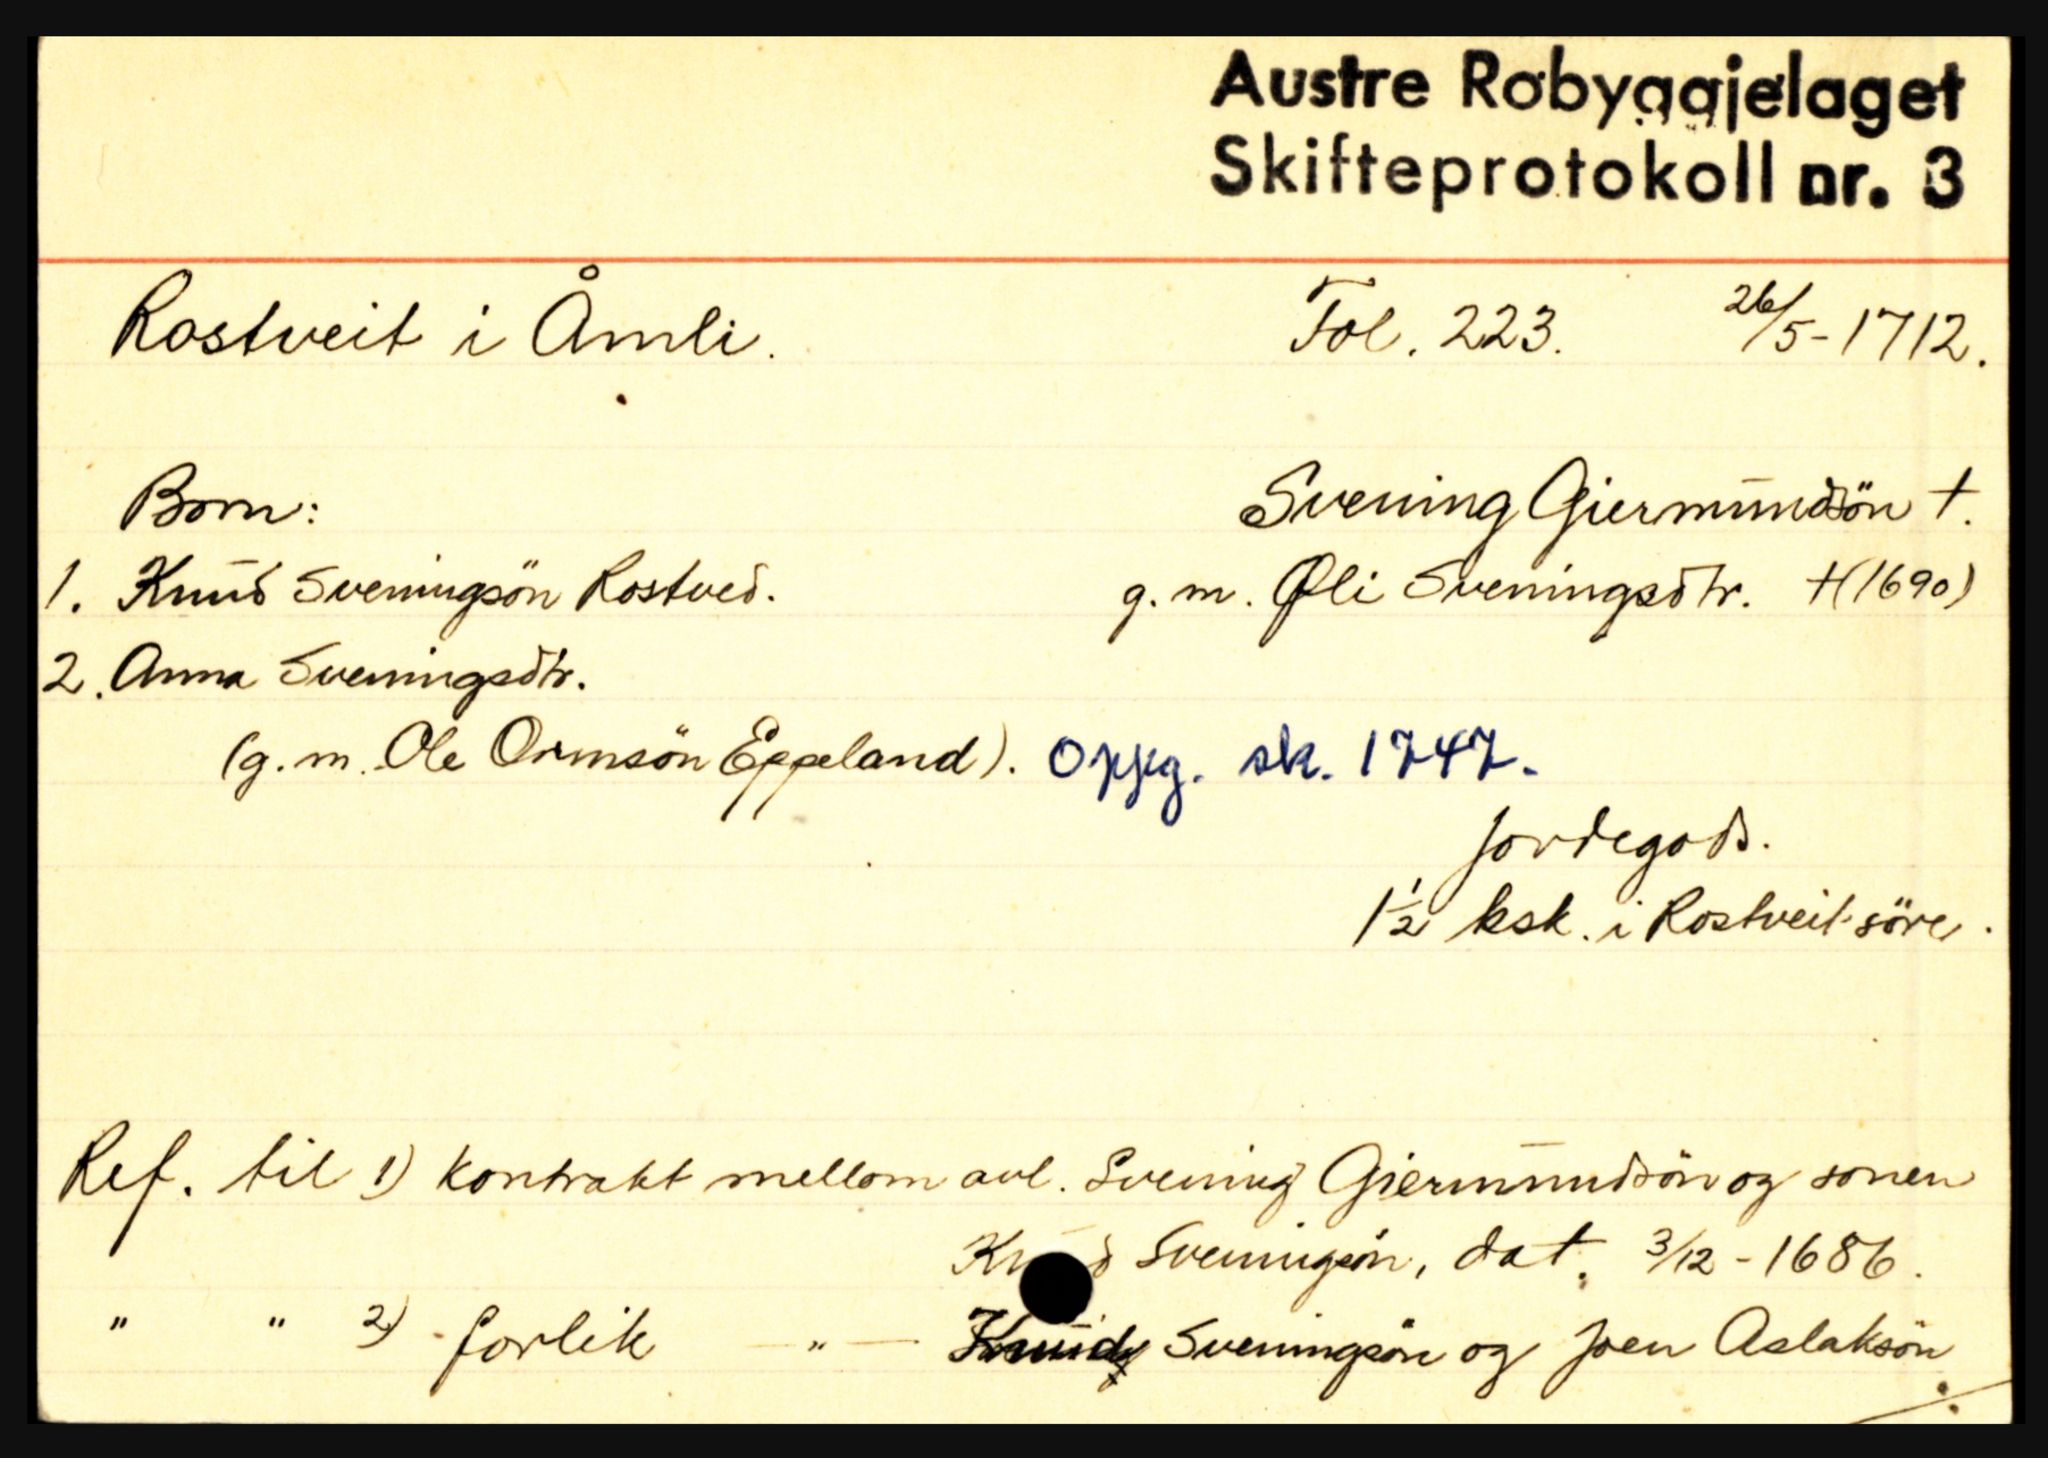 Austre Robyggjelaget
Skifteprotokoll nr. 3
Rostveit i Åmli. Fol. 223. 26/5-1712.
Born: Svening Giermundsön †.
1. Knud Sveningsön Rostved. g. m. Øli Sveningsdtr. †(1690)
2. Anna Sveningsdtr.
(g. m. Ole Ormsön Eppeland). Oppg. sk. 1747.
Jordegods.
1½ ksk. i Rostveit söre.
Ref. til 1) kontrakt mellom avl. Svening Giermundsön og sonen
Sveningsön, dat. 3/12-1686.
" " 2) forlik — " — Knud Sveningsön og Joen Aslaksön